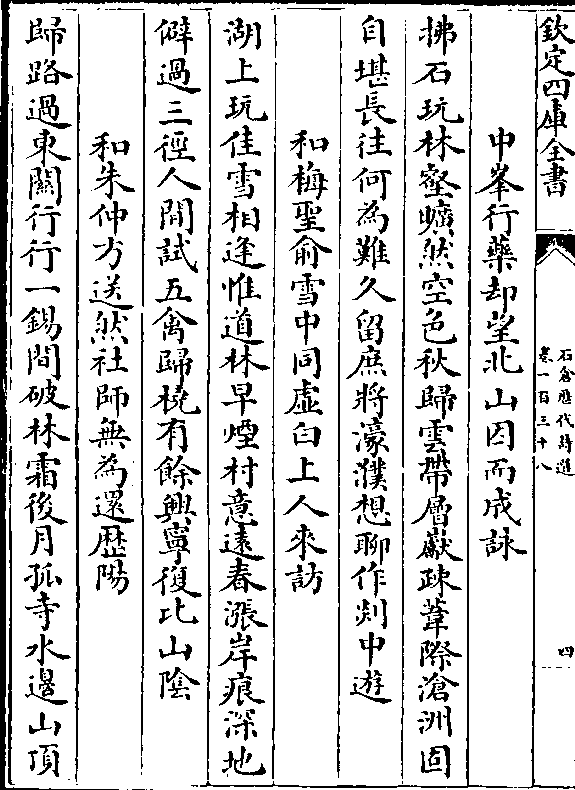 欽定四庫全書
石倉歷代詩選
卷一百三十八
四
中峯行藥却望北山因而成詠
拂石玩林壑曠然空色秋歸雲帶層巘疎葦際滄洲固
自堪長往何為難久留庶將濠濮想聊作剡中遊
和梅聖俞雪中同虛白上人來訪
湖上玩佳雪相逢惟道林早煙村意遠春漲岸痕深地
僻過三徑人間試五禽歸橈有餘興寧復比山陰
和朱仲方送然社師無為還歴陽
歸路過東關行行一錫間破林霜後月孤寺水邉山頂